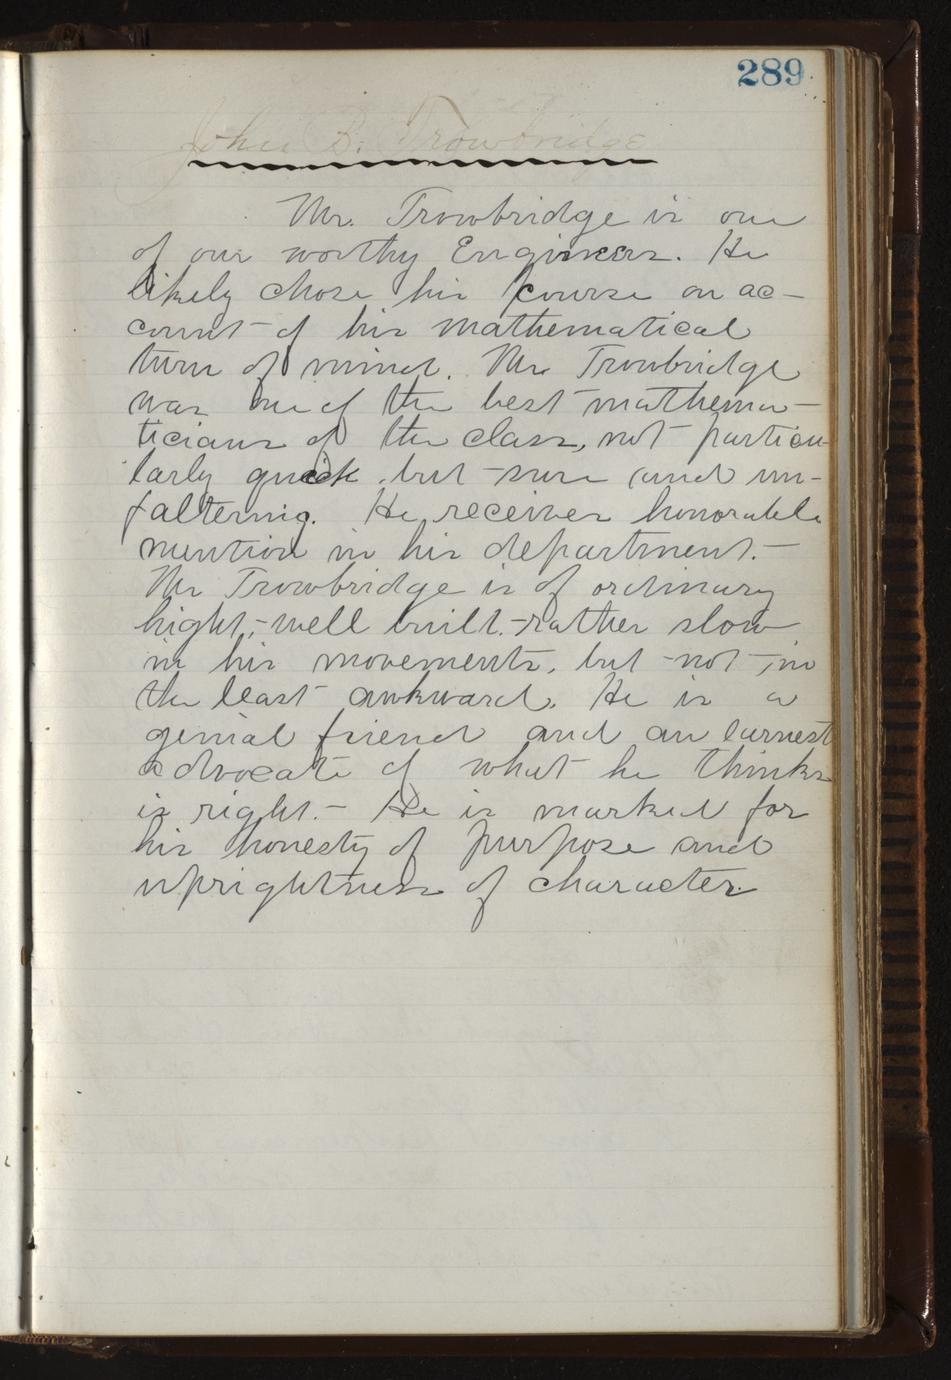 289
John B. Trowbridge
Mr. Trowbridge is one
of our worthy Engineers. He
likely chose his course on ac-
count of his mathematical
turn of mind. Mr. Trowbridge
was one of the best mathema-
ticians of the class, not particu
larly quick, but sure and un-
faltering. He receives honorable
mention in his department.-
Mr Trowbridge is of ordinary
hight,- well built.- rather slow
in his movements, but not in
the least awkward. He is a
genial friend and an earnest
advocate of what he thinks
is right.- He is marked for
his honesty of purpose and
uprightness of character.